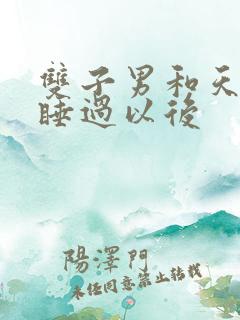 雙子男和天
睡過以後
陽澤門
未經同意禁止轉載